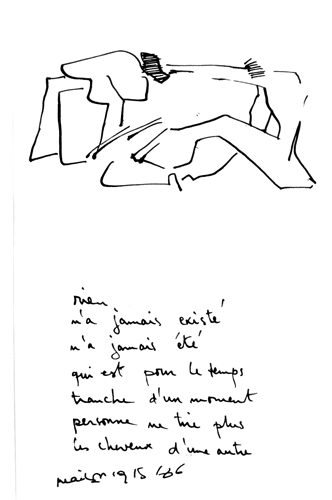 rien
n'a jamais existé
n'a jamais été
qui est pour le temps
tranche d'un moment
personne ne tire plus
les cheveux d'une autre